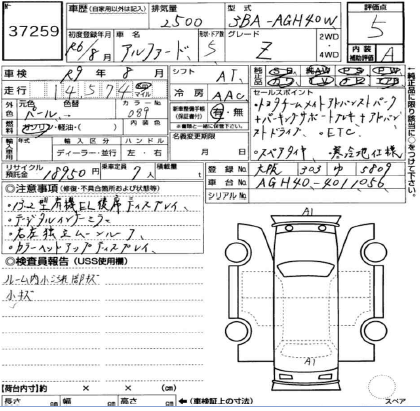 37259
車歴 (自家用以外は記入) 排気量 2500 型式 3BA-AGH40W 評価点 5
初度登録年月 R6/8月 車名 アルファード、 形状・ドア数 5 グレード Z 2WD 4WD 内装補助評価 A
車検 R9年8月 シフト AT
走行 14,574 km マイル 冷房 AAC
外色 元色 パール 色替 カラーNo. 089 新車整備手帳(保証書付) 有・無
車と一緒に保管下さい。
燃料 ガソリン・軽油・( ) 内装色 名義変更期限
輸入区分 ハンドル
ディーラー・並行 左・右 月 日
純正品 セールスポイント
・トヨタチームメイトアドバンストパーク
+パーキングサポートブレーキ+アドバンストドライブ ・ETC、
・スペアタイヤ、寒冷地仕様
←純正品に限り該当に○をつけて下さい。
リサイクル預託金 18950円 乗車定員 7人 積載量 t
登録No. 大阪 303 ゆ 5809
車台No. AGH40-4011056
シリアルNo.
◎注意事項 (修復・不具合箇所および状態等)
・13.2型有機EL後席ディスプレイ、
・デジタルインナーミラー
・左右独立ムーンルーフ、
・カラーヘッドアップディスプレイ、
◎検査員報告 (USS使用欄)
ルーム内小汚れ
小キズ
A1
A1
スペア
【荷台内寸】 × × (cm)
長さ cm 幅 cm 高さ cm ←(車検証上の寸法)